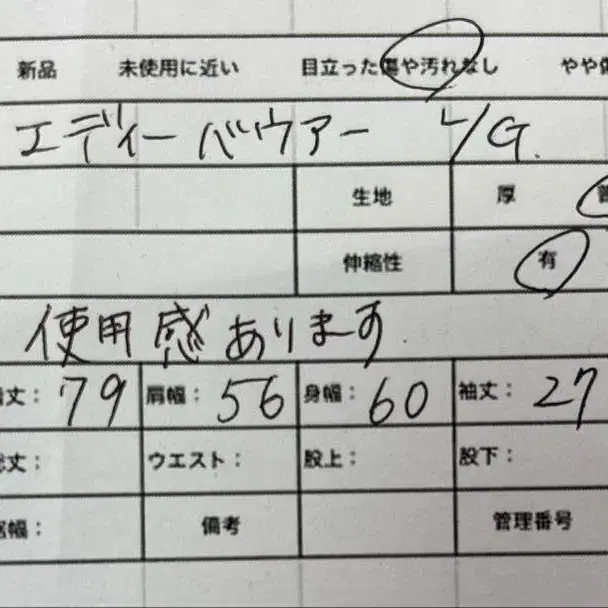 新品 未使用に近い 目立った傷や汚れなし やや傷
エディーバウアー L/G.
生地 厚 普
伸縮性 有
使用感あります
着丈: 79 肩幅: 56 身幅: 60 袖丈: 27
総丈: ウエスト: 股上: 股下:
裾幅: 備考 管理番号